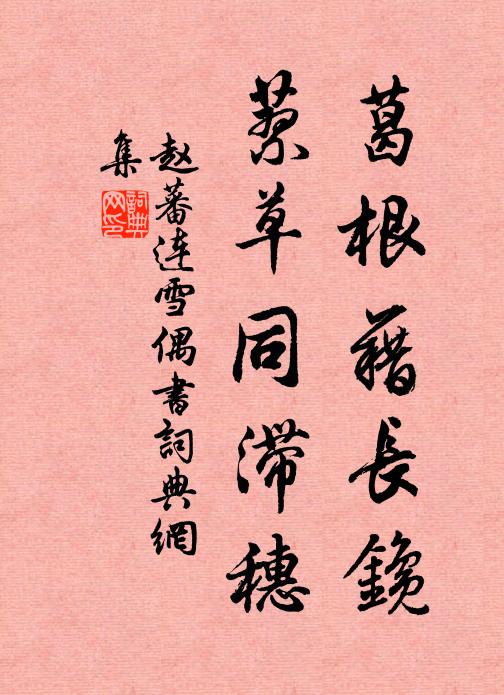 葛根藉長鑱
蔡草同滯穗
赵蕃连雪偶書詞典網
集
詞典網印